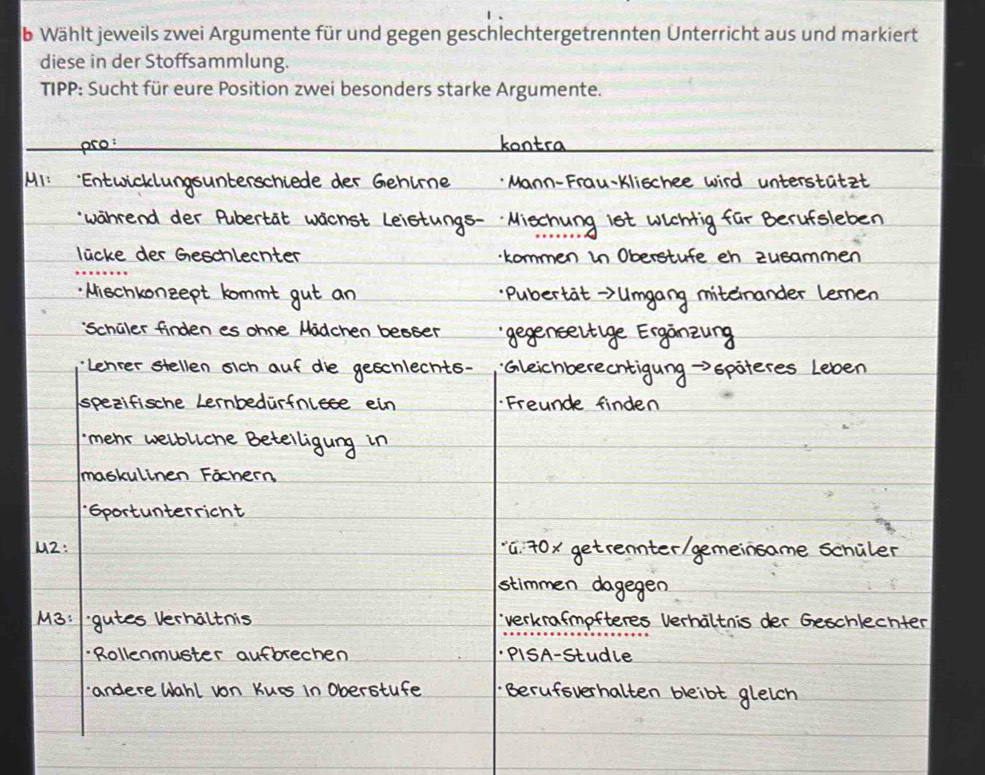 b Wählt jeweils zwei Argumente für und gegen geschlechtergetrennten Unterricht aus und markiert
diese in der Stoffsammlung.
TIPP: Sucht für eure Position zwei besonders starke Argumente.
pro:
kontra
M1: · Entwicklungsunterschiede der Gehirne
· während der Pubertät wächst Leistungs-
lücke der Geschlechter
· Mischkonzept kommt gut an
· Schüler finden es ohne Mädchen besser
· Lehrer stellen sich auf die geschlechts-
spezifische Lernbedürfnisse ein
· mehr weibliche Beteiligung in
maskulinen Fächern
· Sportunterricht
· Mann-Frau-Klischee wird unterstützt
· Mischung ist wichtig für Berufsleben
· kommen in Oberstufe eh zusammen
· Pubertät → Umgang miteinander lernen
· gegenseitige Ergänzung
· Gleichberechtigung → späteres Leben
· Freunde finden
M2:
· ü. 70% getrennter/gemeinsame Schüler
stimmen dagegen
M3: · gutes Verhältnis
· Rollenmuster aufbrechen
· andere Wahl von Kurs in Oberstufe
· verkrafmpfteres Verhältnis der Geschlechter
· PISA-Studie
· Berufsverhalten bleibt gleich